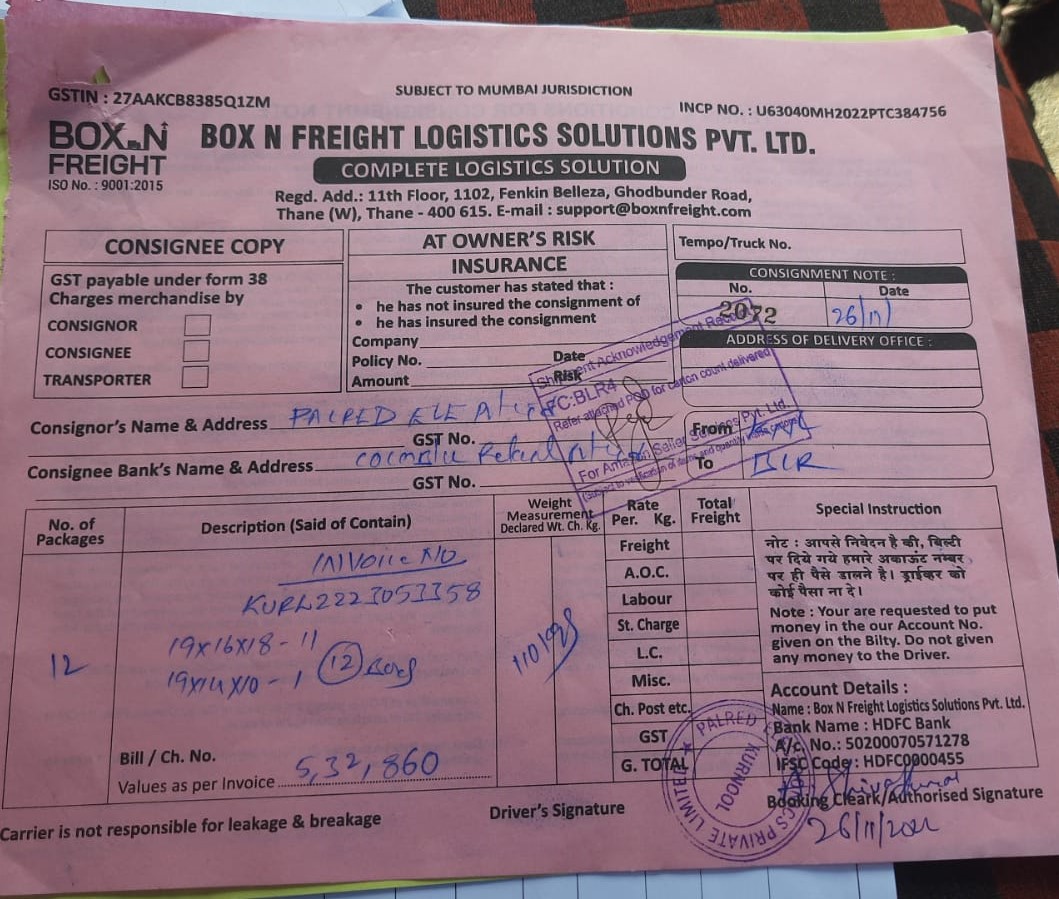 GSTIN : 27AAKCB8385Q1ZM
SUBJECT TO MUMBAI JURISDICTION
INCP NO. : U63040MH2022PTC384756
BOX N FREIGHT
ISO No. : 9001:2015
BOX N FREIGHT LOGISTICS SOLUTIONS PVT. LTD.
COMPLETE LOGISTICS SOLUTION
Regd. Add.: 11th Floor, 1102, Fenkin Belleza, Ghodbunder Road,
Thane (W), Thane - 400 615. E-mail : support@boxnfreight.com
CONSIGNEE COPY
GST payable under form 38
Charges merchandise by
CONSIGNOR
CONSIGNEE
TRANSPORTER
AT OWNER'S RISK
INSURANCE
The customer has stated that :
• he has not insured the consignment of
• he has insured the consignment
Company
Policy No. Date
Amount Risk
Tempo/Truck No.
CONSIGNMENT NOTE :
No. Date
2072 26/11/
ADDRESS OF DELIVERY OFFICE :
Shipment Acknowledgement
FC:BLR4
Refer attached POD for carton count delivered
For Amazon Seller Services Pvt. Ltd.
Consignor's Name & Address PALRED
GST No.
Consignee Bank's Name & Address
GST No.
From
To BLR
No. of Packages
Description (Said of Contain)
Weight Measurement
Declared Wt. Ch. Kg.
Rate Per. Kg.
Total Freight
Special Instruction
12
INVOICE NO
19x16x18 - 11
19x14x10 - 1
12
110 kgs
Bill / Ch. No.
Values as per Invoice 5,32,860
Freight
A.O.C.
Labour
St. Charge
L.C.
Misc.
Ch. Post etc.
GST
G. TOTAL
नोट : आपसे निवेदन है की, बिल्टी
पर दिये गये हमारे अकाऊंट नम्बर
पर ही पैसे डालने है। ड्राईव्हर को
कोई पैसा ना दे।
Note : Your are requested to put
money in the our Account No.
given on the Bilty. Do not given
any money to the Driver.
Account Details :
Name : Box N Freight Logistics Solutions Pvt. Ltd.
Bank Name : HDFC Bank
A/c. No.: 50200070571278
IFSC Code : HDFC0000455
PALRED PRIVATE LIMITED
KURNOOL
Carrier is not responsible for leakage & breakage
Driver's Signature
Booking Cleark/Authorised Signature
26/11/2022